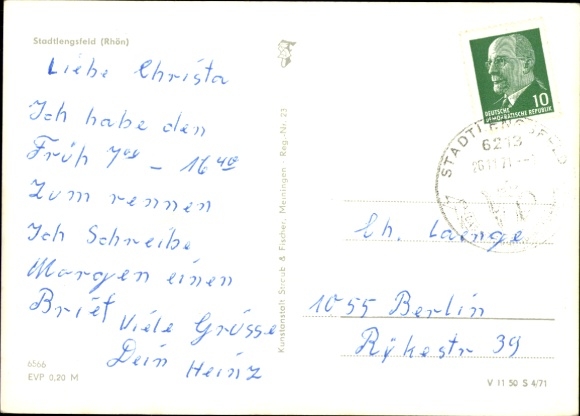 Stadtlengsfeld (Rhön)
Liebe Christa
Ich habe den
Früh 7⁰⁰ – 16⁴⁰
Zum rennen
Ich Schreibe
Morgen einen
Brief Viele Grüsse
Dein Heinz
6566
EVP 0,20 M
Kunstanstalt Straub & Fischer, Meiningen - Reg.-Nr. 23
DEUTSCHE
DEMOKRATISCHE REPUBLIK
10
STADTLENGSFELD
6213
Ch. Lainge
1055 Berlin
Rykestr 39
V 11 50 S 4/71